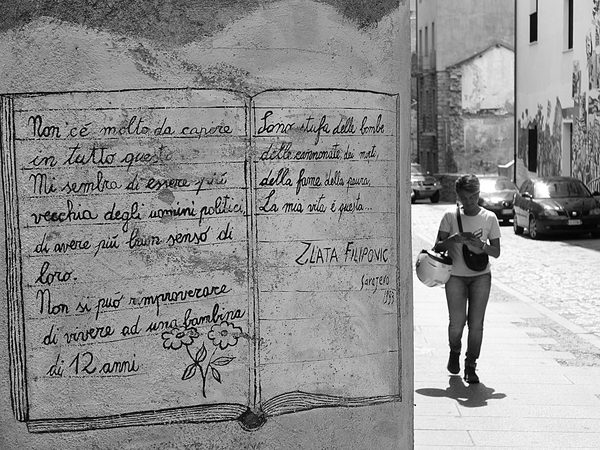 Non c'é molto da capire
in tutto questo.
Mi sembra di essere piú
vecchia degli uomini politici,
di avere piú buon senso di
loro.
Non si puó rimproverare
di vivere ad una bambina
di 12 anni
Sono stufa delle bombe
delle cannonate dei morti,
della fame della paura,
La mia vita é questa...
ZLATA FILIPOVIC
Sarajevo
1993